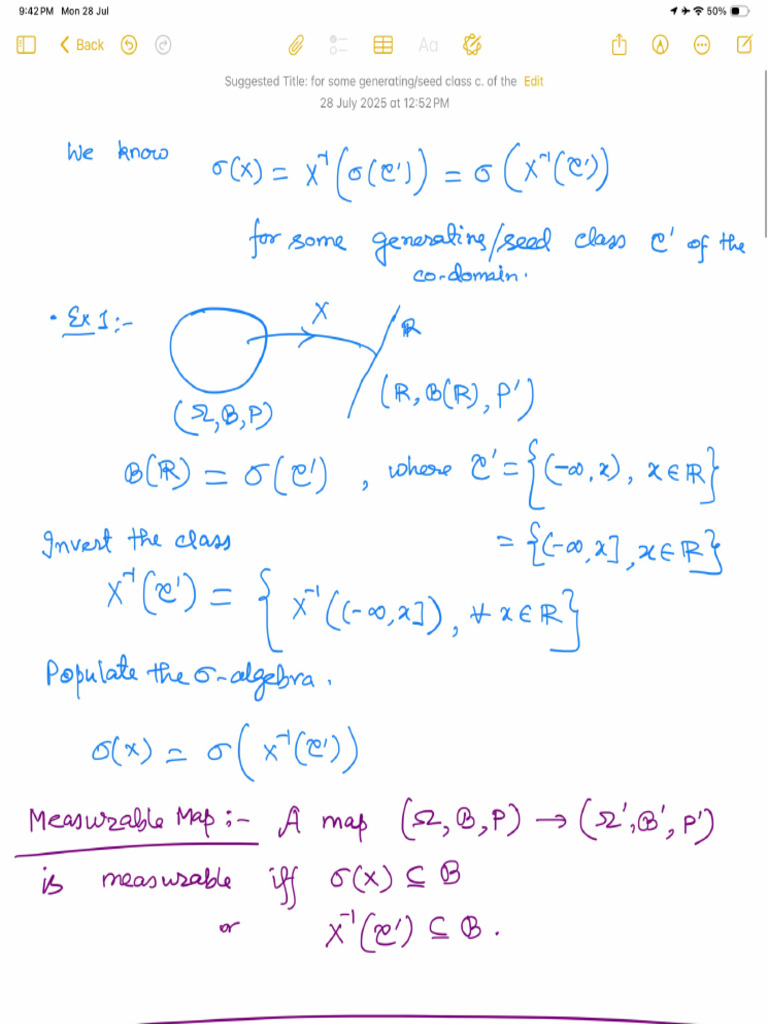 9:42 PM Mon 28 Jul 50%
Back Aa
Suggested Title: for some generating/seed class c. of the Edit
28 July 2025 at 12:52 PM
We know σ(X) = X⁻¹(σ(𝒞')) = σ(X⁻¹(𝒞'))
for some generating/seed class 𝒞' of the
co-domain.
• Ex 1:-
X
ℝ
(Ω, B, P)
(ℝ, B(ℝ), P')
B(ℝ) = σ(𝒞'), where 𝒞' = {(-∞, x), x ∈ ℝ}
Invert the class = {(-∞, x], x ∈ ℝ}
X⁻¹(𝒞') = { X⁻¹((-∞, x]), ∀ x ∈ ℝ}
Populate the σ-algebra.
σ(X) = σ(X⁻¹(𝒞'))
Measurable Map:- A map (Ω, B, P) → (Ω', B', P')
is measurable iff σ(X) ⊆ B
or X⁻¹(𝒞') ⊆ B.